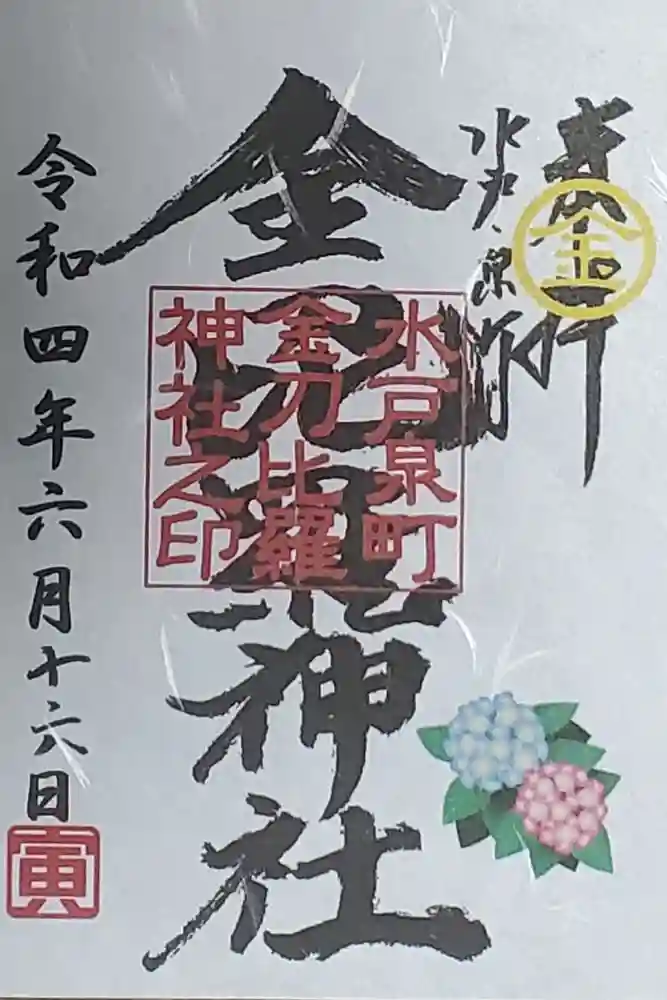 奉拝
金
水戸、泉町
金刀比羅神社
水戸泉町
金刀比羅
神社之印
令和四年六月十六日
寅